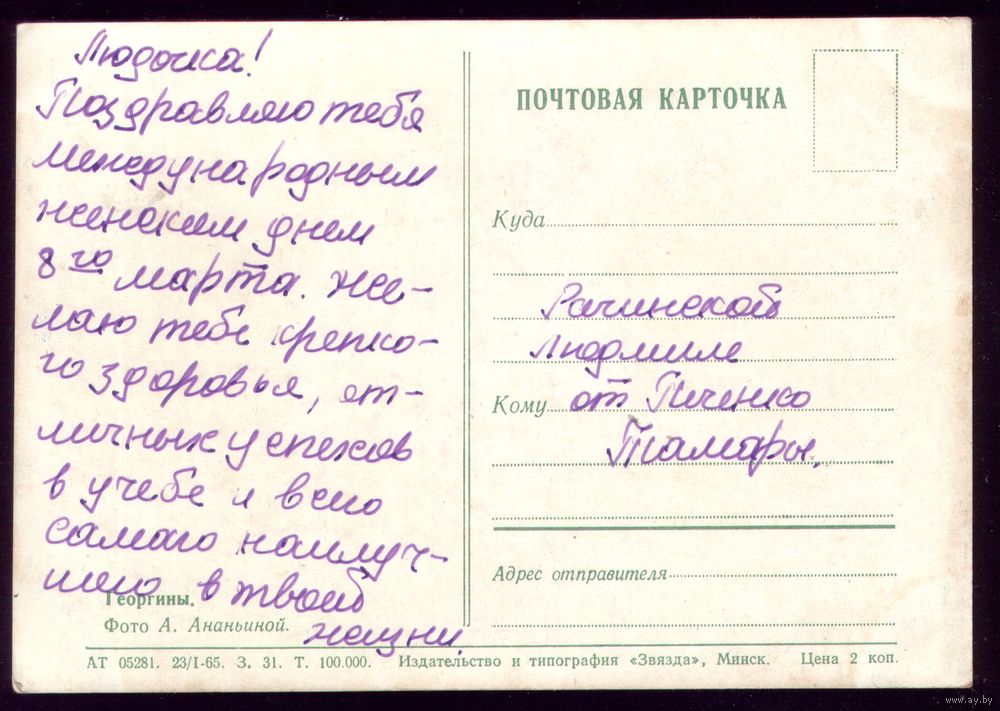 Людочка!
Поздравляю тебя
международным
женским днем
8го марта. Же-
лаю тебе крепко-
го здоровья, от-
личных успехов
в учебе и всего
самаго наилуч-
шего в твоей
жизни.
Георгины.
Фото А. Ананьиной.
ПОЧТОВАЯ КАРТОЧКА
Куда
Рачинской
Людмиле
Кому от Пиченко
Тамары.
Адрес отправителя
АТ 05281. 23/I-65. З. 31. Т. 100.000. Издательство и типография «Звязда», Минск. Цена 2 коп.
www.ay.by